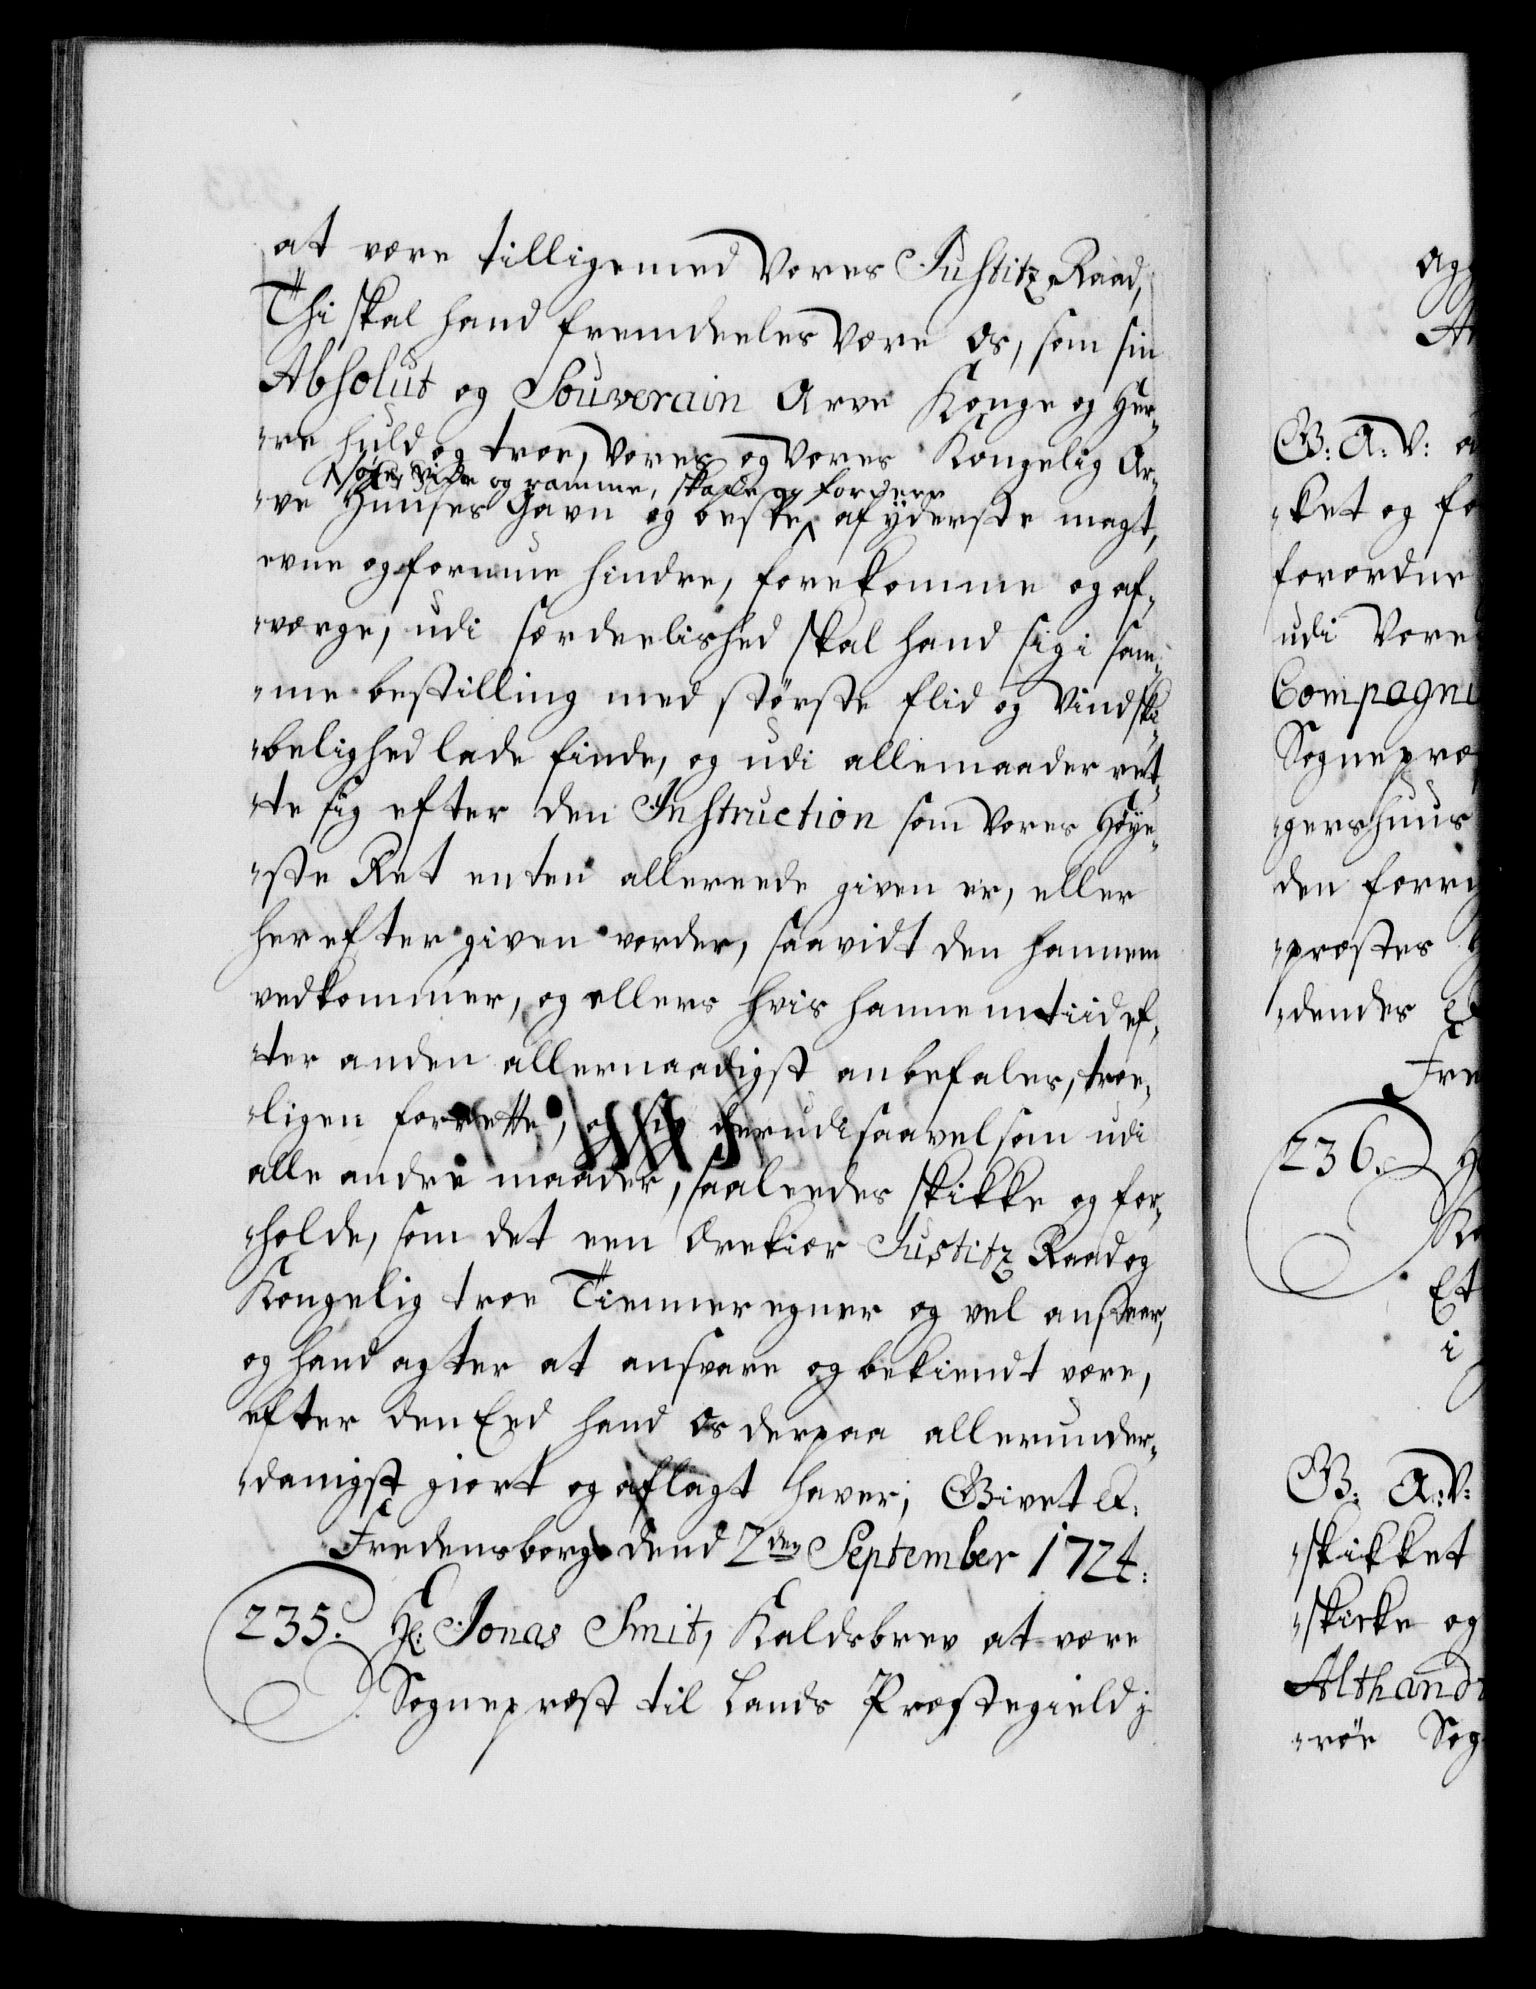 at være tilligemed Vores Justitz Raad,
Thi skal hand fremdeeles være os, som sin
Absolut og Souverain Arve Konge og Her-
-re huld og troe, Vores og Vores Kongelig Ar-
søge, vide og ramme, skade og forderv
-ve Huuses Gavn og beste, af yderste magt,
evne og formue hindre, forekomme og af-
-værge, udi særdeelished skal hand sig i sam-
-me bestilling med störste flid og Vindski-
-belighed lade finde, og udi allemaader ret-
-te sig efter den Instruction som Vores Høye-
-ste Ret enten allereede given er, eller
herefter given vorder, saavidt den hannem
vedkommer, og ellers hvis hannem tiid ef-
-ter anden allernaadigst anbefales, troe-
-ligen forrette, og sig derudi saavelsom udi
alle andre maader, saaleedes skikke og for-
-holde, som det een Ærekier Justitz Raad og
Kongelig troe Tienner egner og vel anstaaer,
og hand agter at ansvare og bekiendt være,
efter den Eed hand os derpaa allerunder-
-danigst giort og aflagt haver, Givet &:
Fredensborg dend 2den September 1724.
235. Hr: Jonas Smit, Kaldsbrev at være
Sognepræst til Lands Præstegield j
G: A: V:
-ket og fo
forordne
udi Vore
Compagni
Sognepræ
-gershuus
den forri
-præstes
-dendes
Fre
236.
Et
i
G: A: V:
-skikket
-skicke og
Althand
-rör Sog